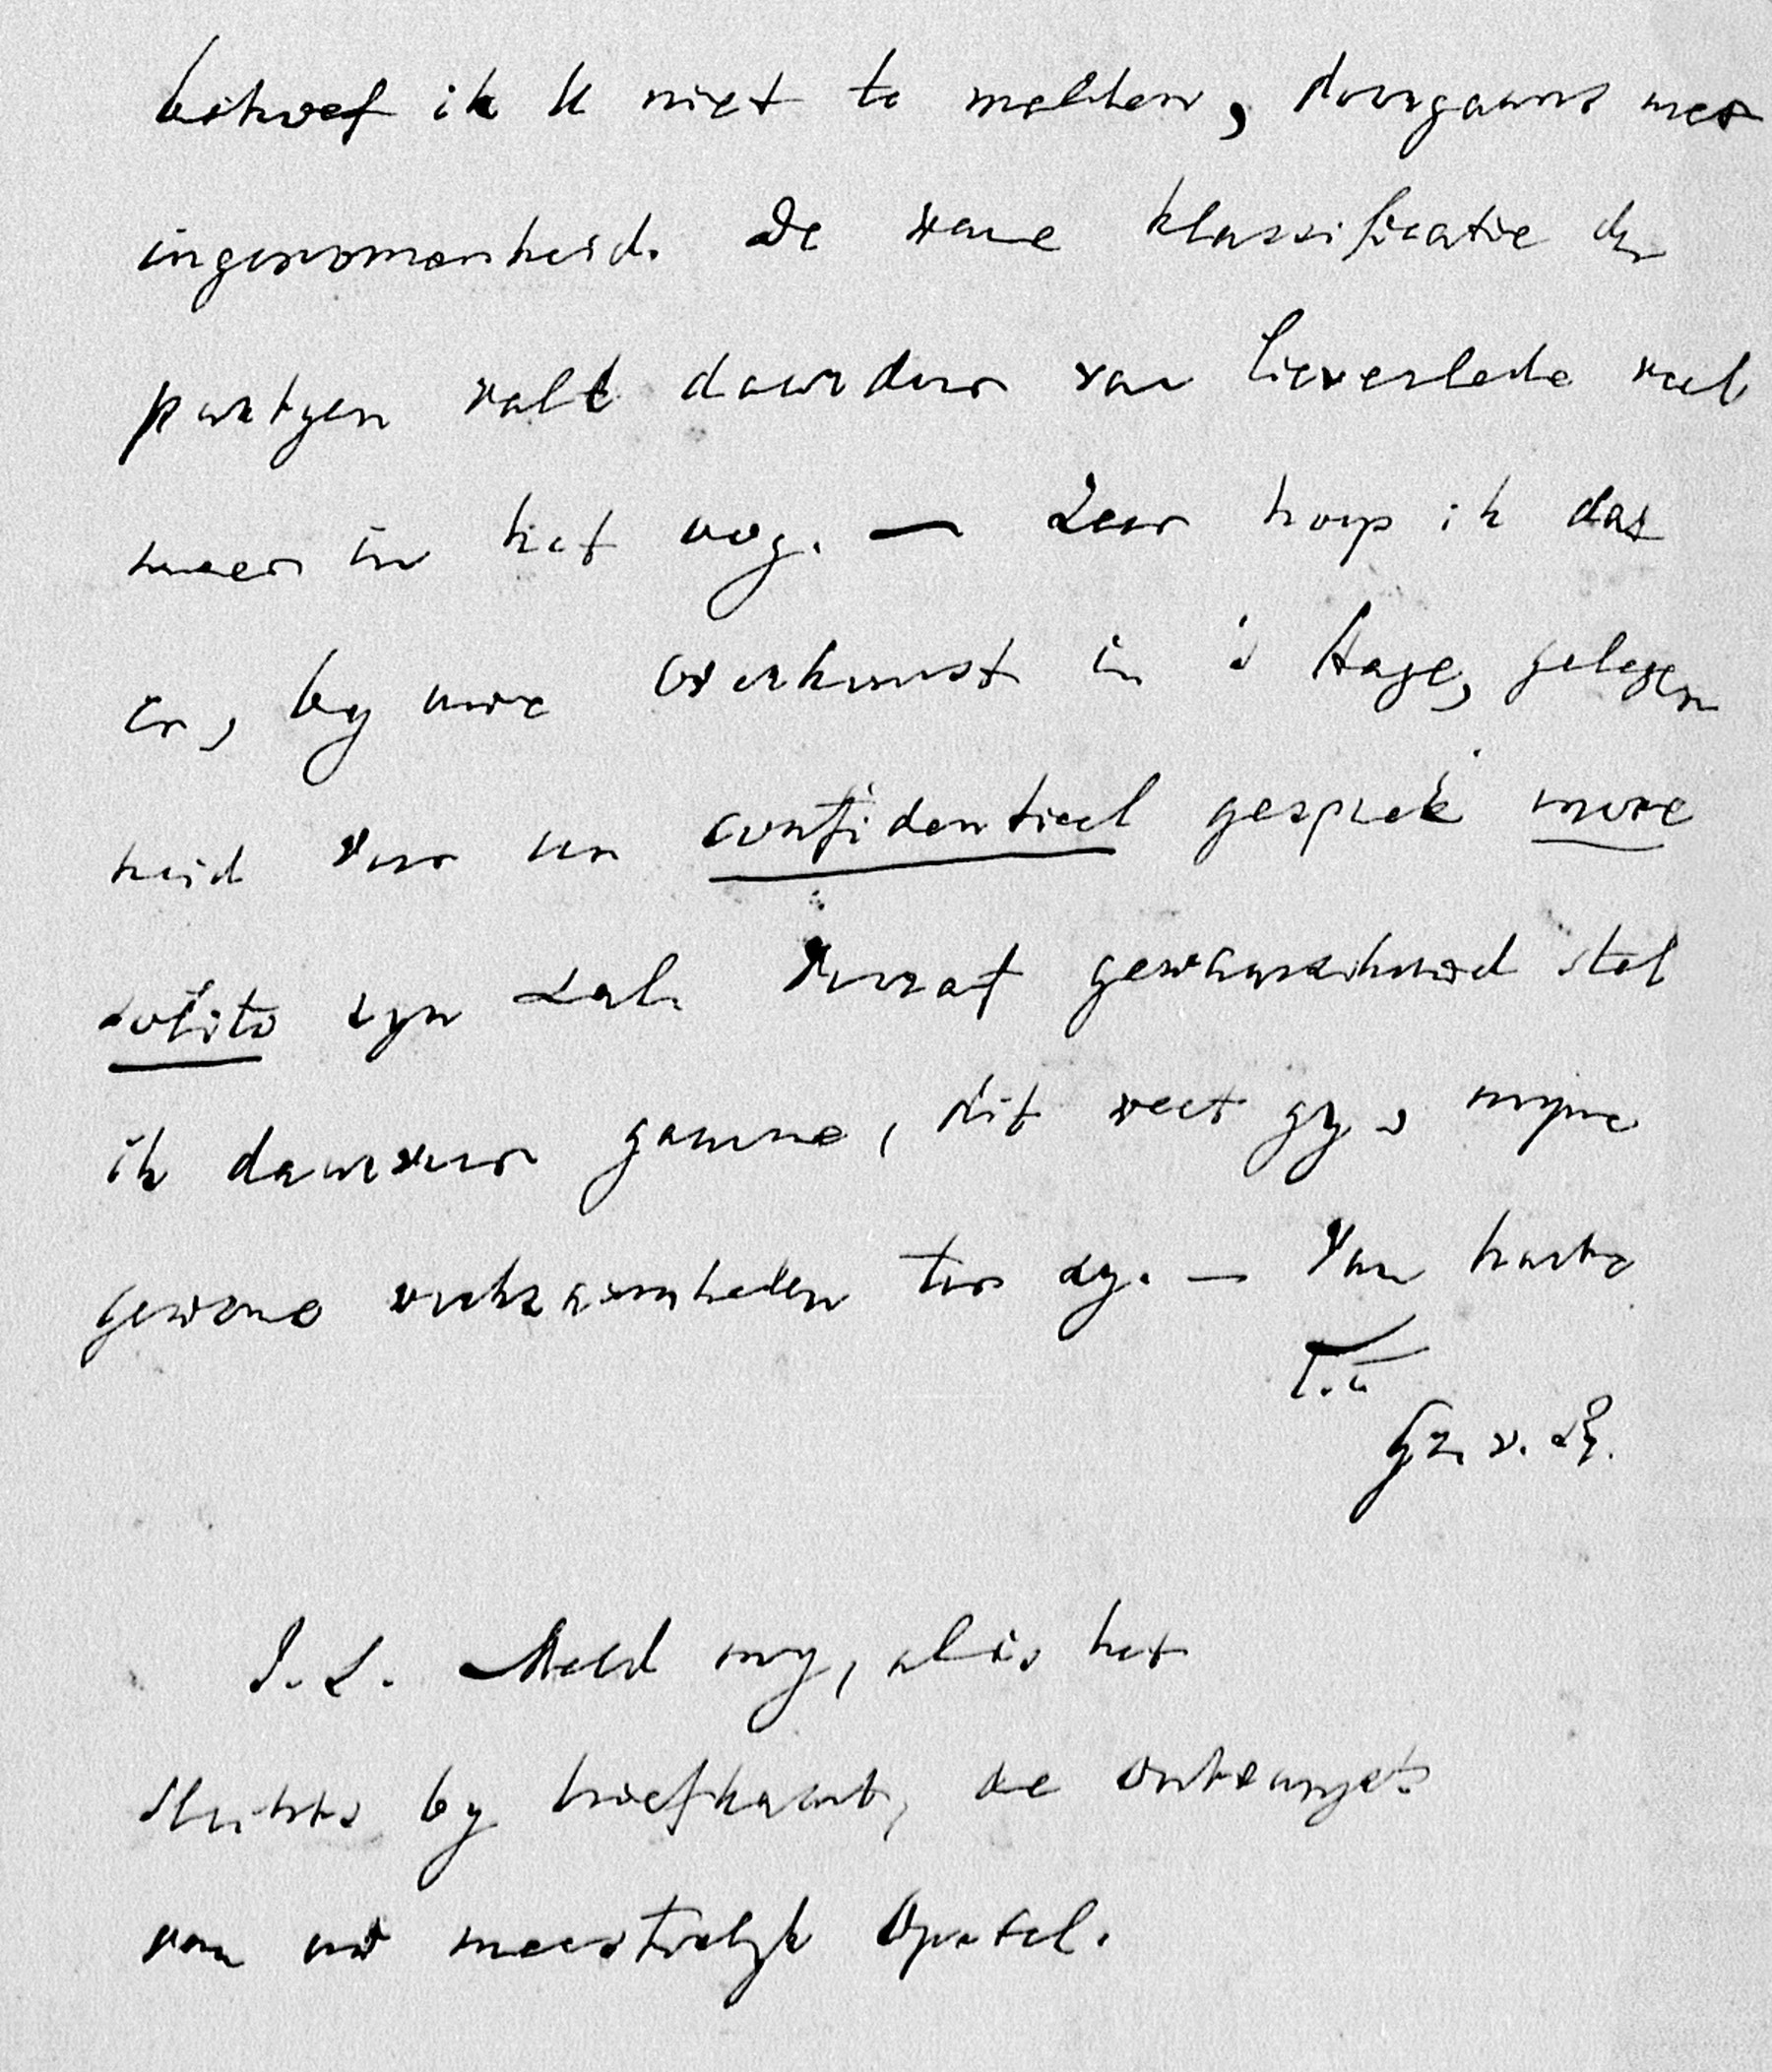 behoef ik U niet te melden, doorgaans met
ingenomenheid. De ware klassificatie der
partyen valt daardoor van lieverlede veel
meer in het oog. — Zeer hoop ik dat
er, by uwe overkomst in 's Hage, gelegen
heid voor een confidentieel gesprek more
solito zyn zal. Vooraf gewaarschuwd stel
ik daarvoor gaarne, dit weet gy, myne
gewone werkzaamheden ter zy. — Van harte
T.t.
G. v. P.
P.S. Meld my, al is het
slechts by briefkaart, de ontvangst
van uw meesterlyk opstel.